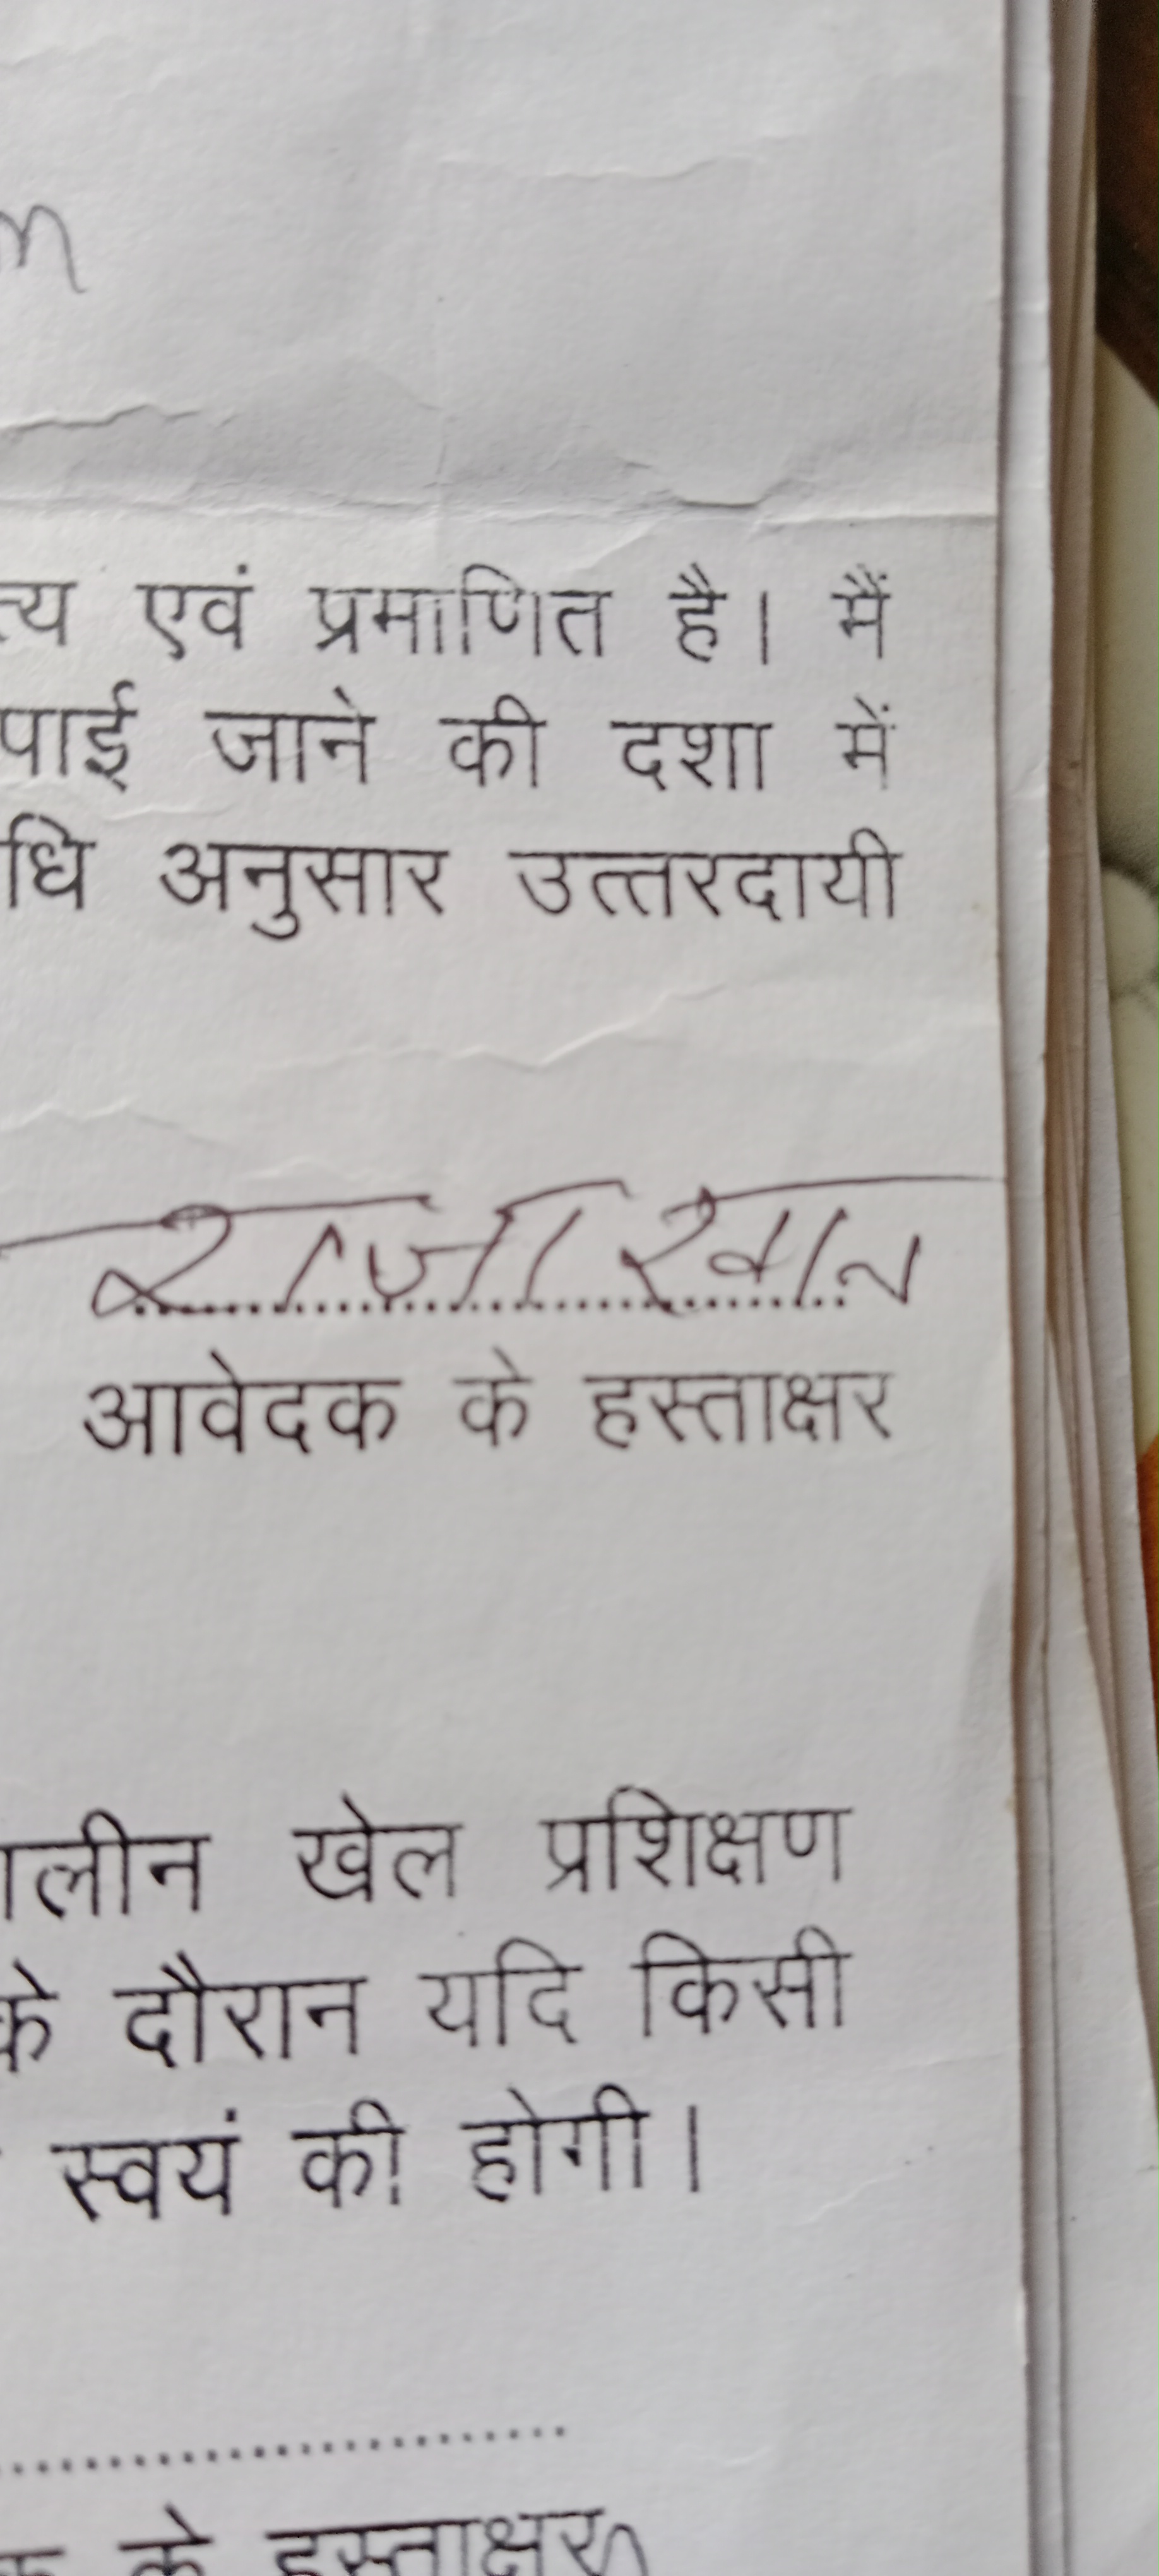 त्य एवं प्रमाणित है। मैं
पाई जाने की दशा में
धि अनुसार उत्तरदायी
राजा खान
आवेदक के हस्ताक्षर
लीन खेल प्रशिक्षण
के दौरान यदि किसी
स्वयं की होगी।
के हस्ताक्षर